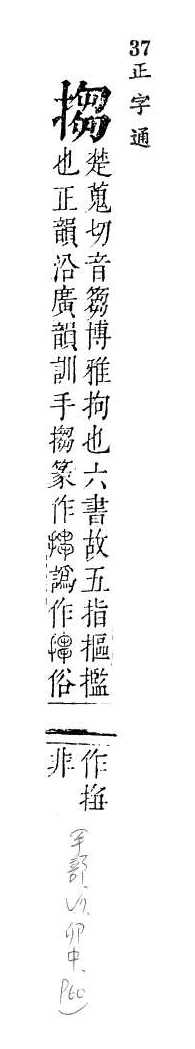 37 正字通
搊
楚蒐切音篘博雅拘也六書故五指摳㩜
也正韻沿廣韻訓手搊篆作譌作俗
作
非
手部 卯中 P60